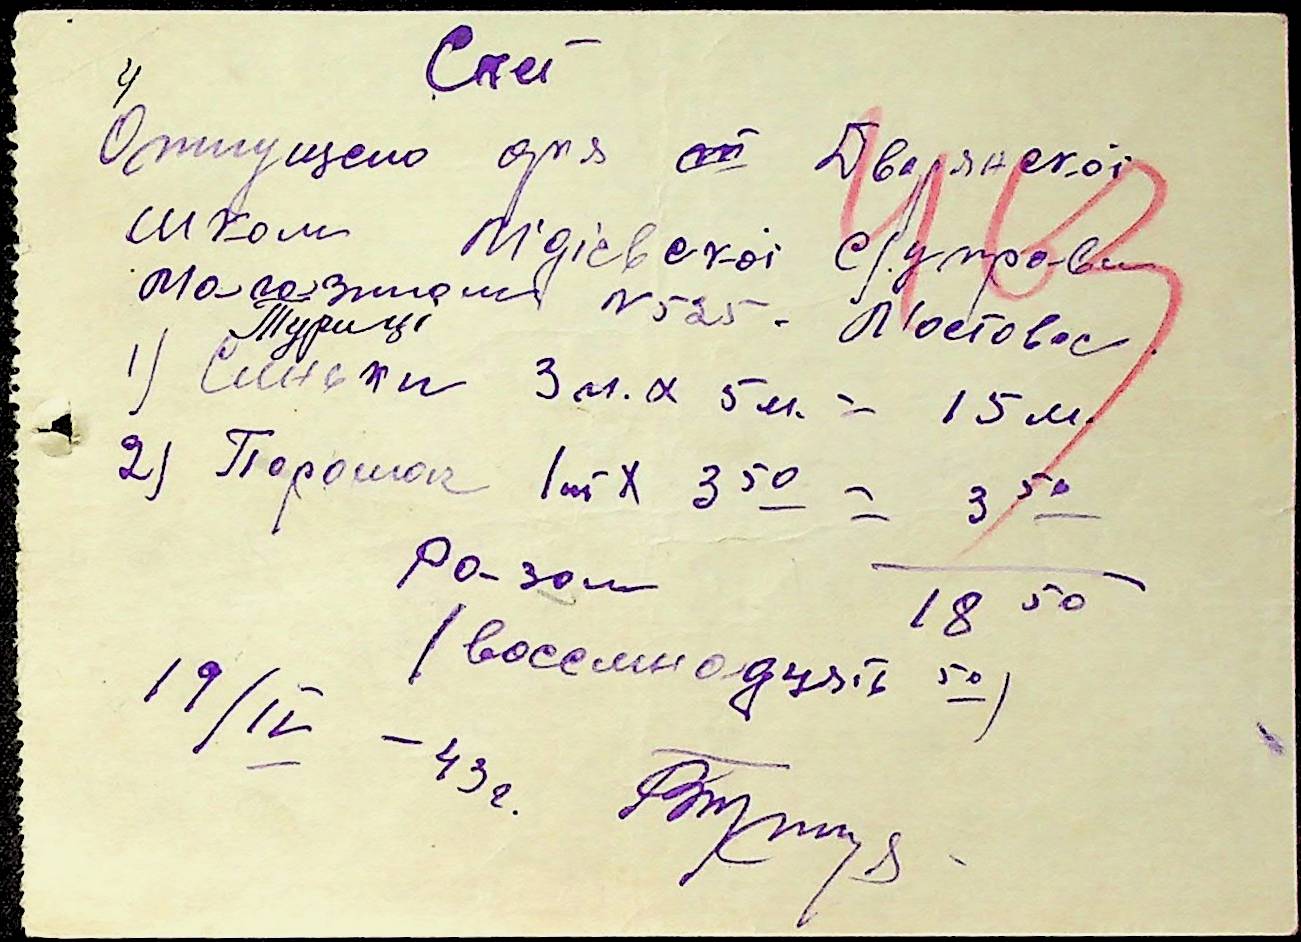 4
Счет
Отпущено для Дворянскої
школи Мідієвскої С/.управи
Магазином N525 - Мостовое
Турищі
1) Синьки 3 м. х 5 м. = 15 м.
2) Порошок 1 шт Х 3 50 = 3 50
Разом 18 50
(восемнадцять 50)
19/IV - 43 г.